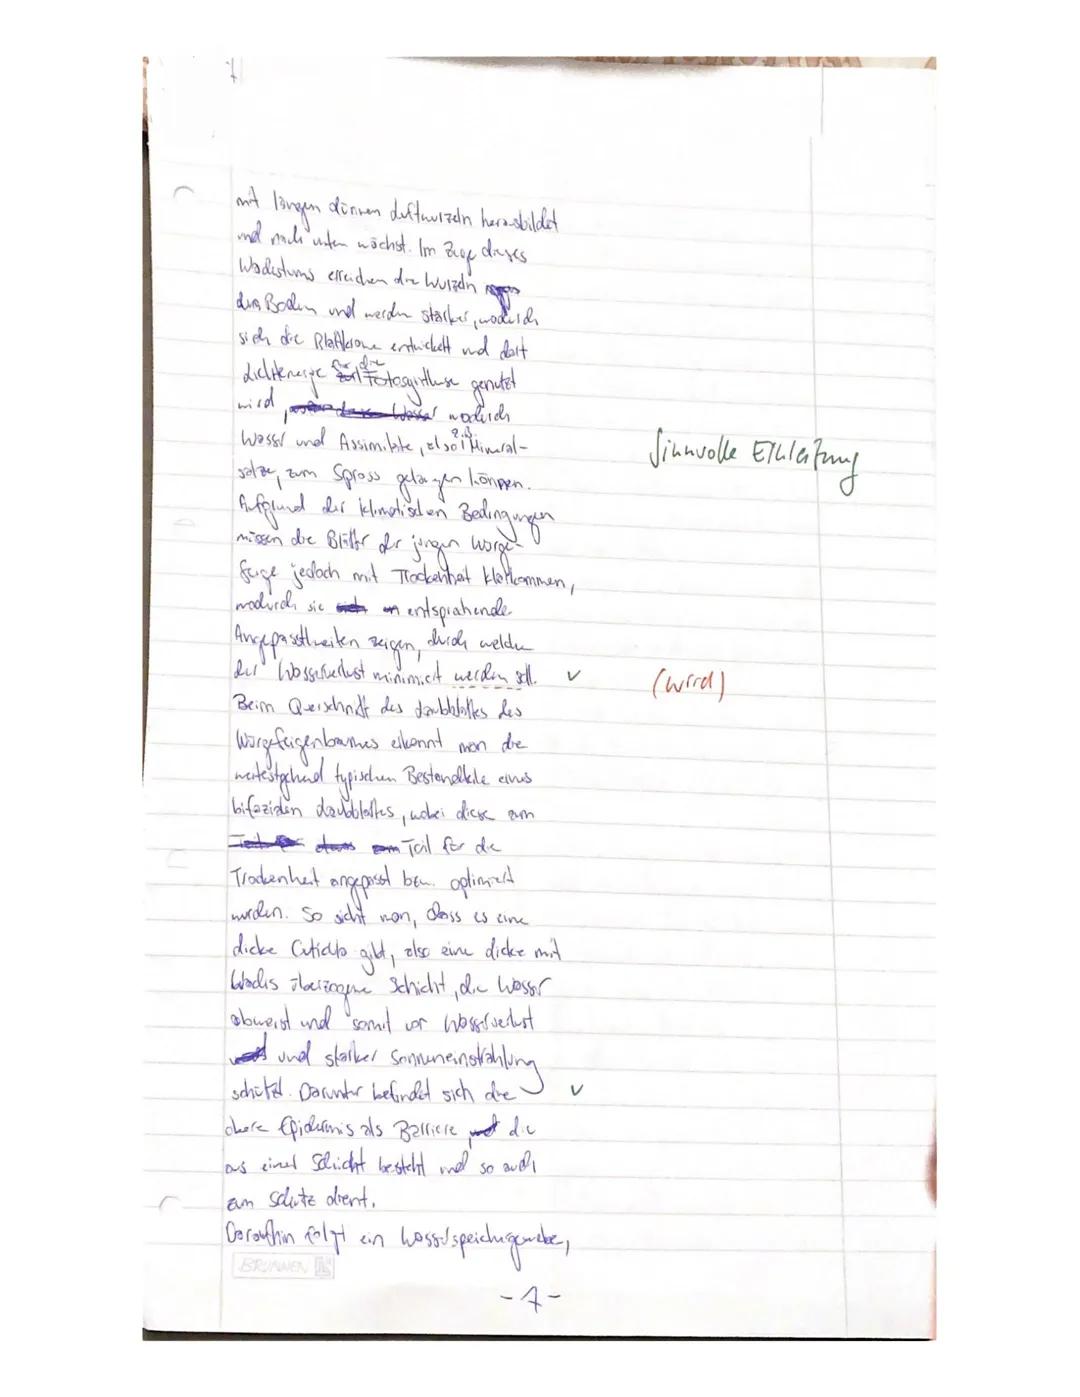 mit langen dünnen Luftwurzeln herausbildet
und nach unten wächst. Im Zuge dieses
Wachstums erreichen die Wurzeln
den Boden und werden stärker, wodurch
sich die Blattkrone entwickelt und dort
Lichtenergie für die Fotosynthese genutzt
wird, wodurch
Wasser und Assimilate, also z.B. Mineral-
salze, zum Spross gelangen können.
Sinnvolle Einleitung
Aufgrund der klimatischen Bedingungen
müssen die Blätter der jungen Würge-
feige jedoch mit Trockenheit klarkommen,
wodurch sie entsprechende
Angepasstheiten zeigen, durch welche
der Wasserverlust minimiert werden soll. ✓ (wird)
Beim Querschnitt des Laubblattes des
Würgefeigenbaumes erkennt man die
weitestgehend typischen Bestandteile eines
bifazialen Laubblattes, wobei diese zum
Teil für die
Trockenheit angepasst bzw. optimiert
wurden. So sieht man, dass es eine
dicke Cuticula gibt, also eine dicke mit
Wachs überzogene Schicht, die Wasser
abweist und somit vor Wasserverlust
und starker Sonneneinstrahlung
schützt. Darunter befindet sich die ✓
obere Epidermis als Barriere, die
aus einer Schicht besteht und so auch
zum Schutz dient.
Daraufhin folgt ein Wasserspeichergewebe,
BRUNNEN